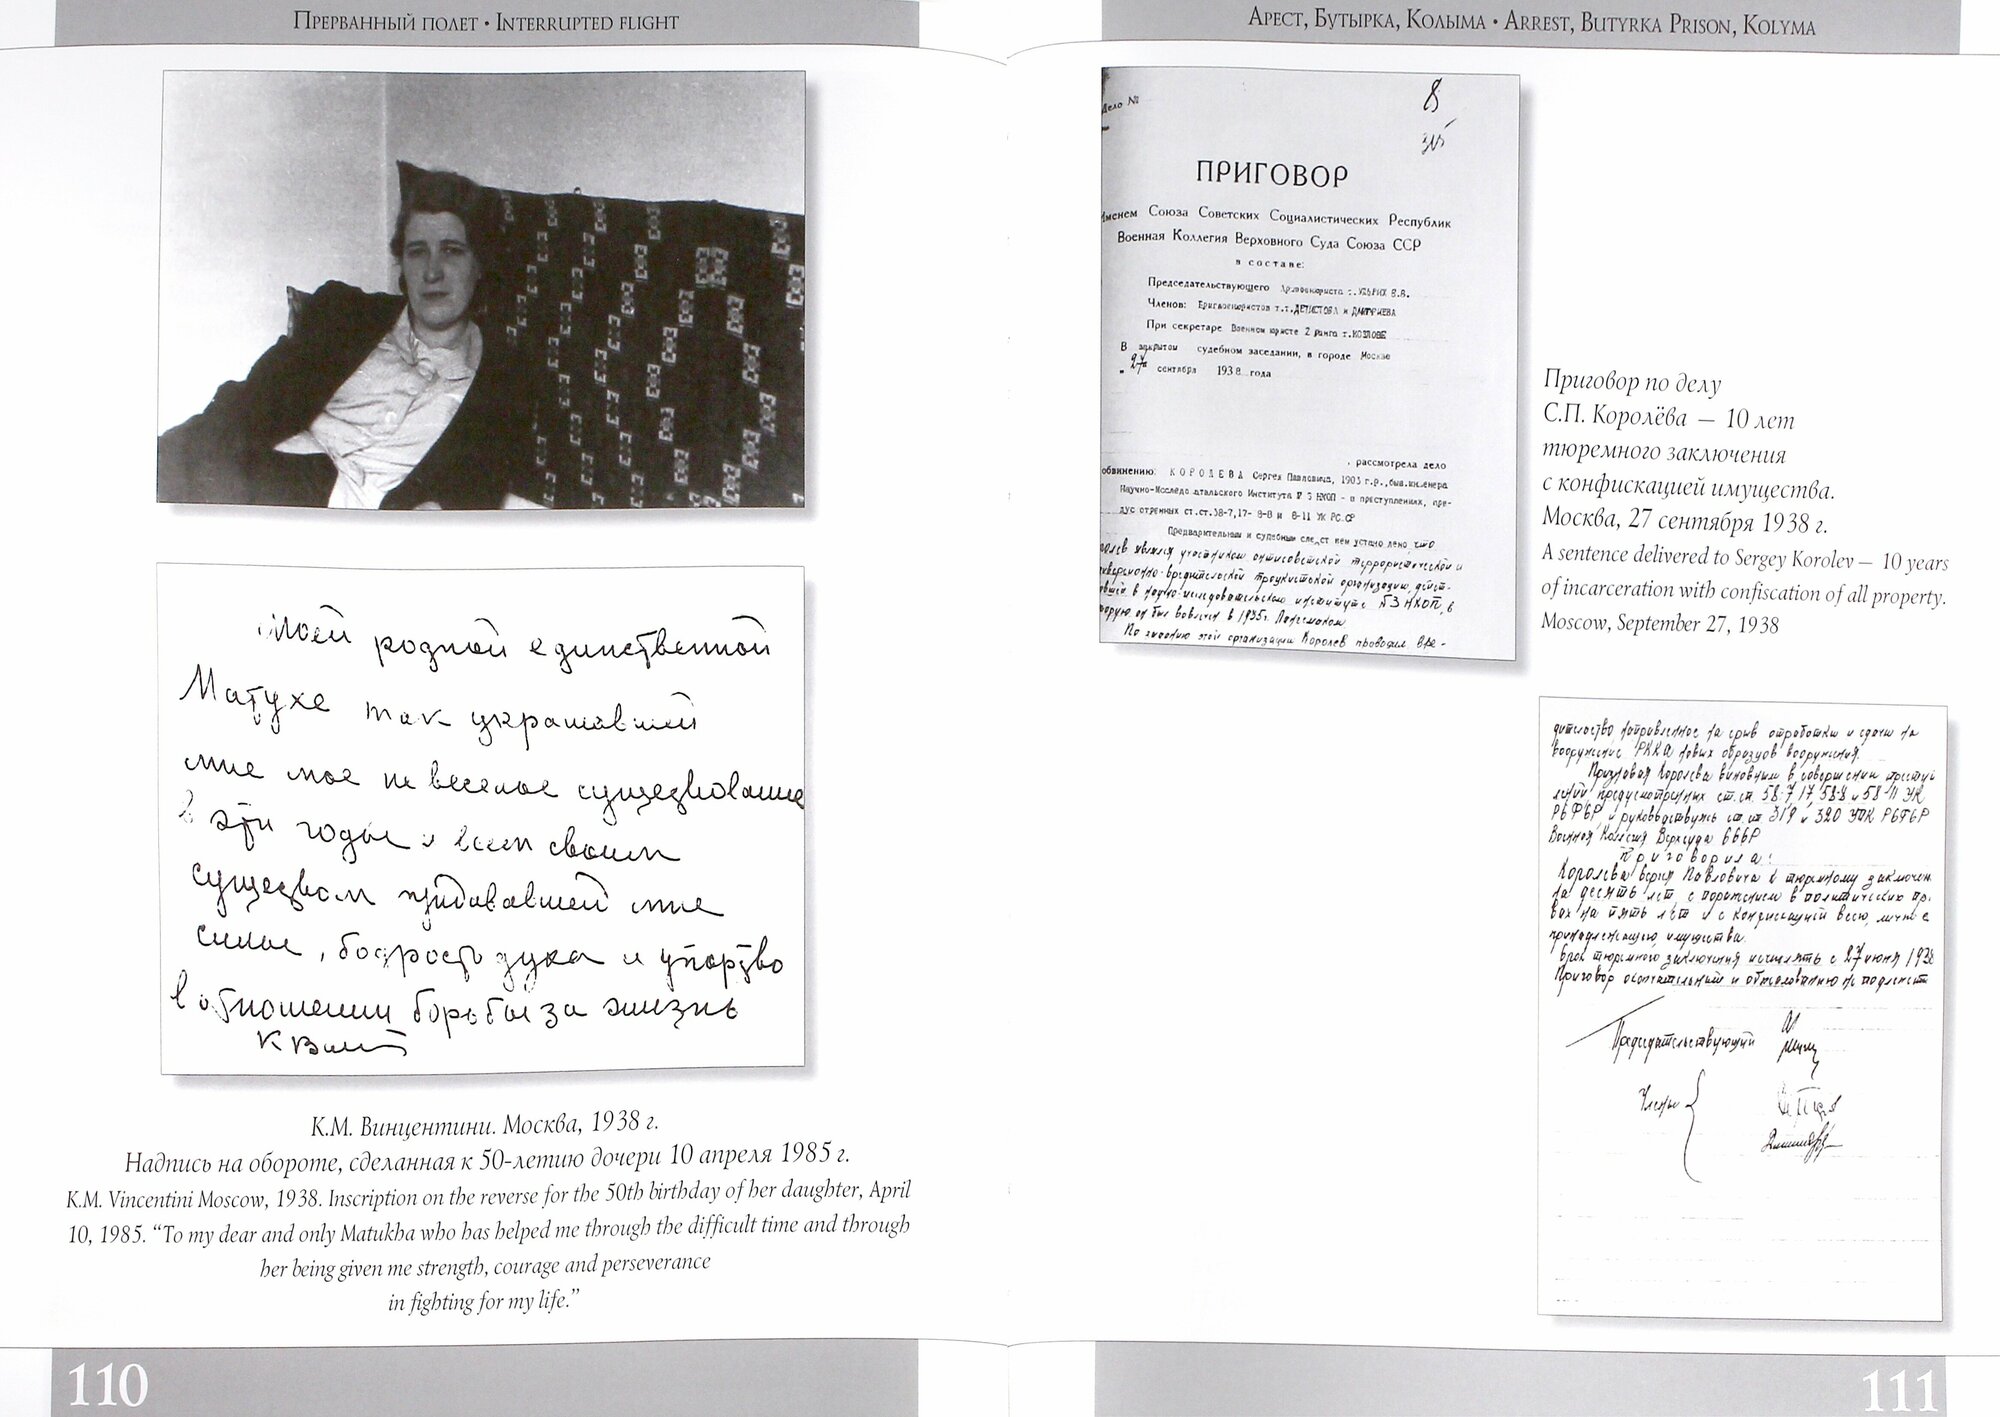 Прерванный полет • Interrupted flight
Моей родной единственной
Матухе так украшавшей
мне мое невеселое существование
в эти годы и всем своим
существом придававшей мне
силы, бодрость духа и упорство
в отношении борьбы за жизнь
К Винт
К.М. Винцентини. Москва, 1938 г.
Надпись на обороте, сделанная к 50-летию дочери 10 апреля 1985 г.
K.M. Vincentini Moscow, 1938. Inscription on the reverse for the 50th birthday of her daughter, April
10, 1985. “To my dear and only Matukha who has helped me through the difficult time and through
her being given me strength, courage and perseverance
in fighting for my life.”
110
Арест, Бутырка, Колыма • Arrest, Butyrka Prison, Kolyma
Дело №
8
315
ПРИГОВОР
Именем Союза Советских Социалистических Республик
Военная Коллегия Верховного Суда Союза ССР
в составе:
Председательствующего Армвоенюриста т. УЛЬРИХ В.В.
Членов: Бригвоенюристов т.т. ДЕТИСТОВА и ДМИТРИЕВА
При секретаре Военном юристе 2 ранга т. КОЗЛОВЕ
В закрытом судебном заседании, в городе Москве
"27" сентября 1938 года
, рассмотрела дело
обвинению: КОРОЛЕВА Сергея Павловича, 1903 г.р., быв. инженера
Научно-Исследовательского Института № 3 НКОП - в преступлениях, пре-
дусмотренных ст.ст. 58-7, 17-58-8 и 58-11 УК РСФСР
Предварительным и судебным следствием установлено, что
Королев являлся участником антисоветской террористической и
диверсионно-вредительской троцкистской организации, дейст-
вовавшей в научно-исследовательском институте №3 НКОП, в
которую он был вовлечен в 1935г. Лангемаком.
По заданию этой организации Королев проводил вре-
Приговор по делу
С.П. Королёва — 10 лет
тюремного заключения
с конфискацией имущества.
Москва, 27 сентября 1938 г.
A sentence delivered to Sergey Korolev — 10 years
of incarceration with confiscation of all property.
Moscow, September 27, 1938
дительство направленное на срыв отработки и сдачи на
вооружение РККА новых образцов вооружения.
Признавая Королева виновным в совершении преступ
лений предусмотренных ст.ст. 58-7, 17-58-8 и 58-11 УК
РСФСР и руководствуясь ст.ст. 319 и 320 УПК РСФСР
Военная Коллегия Верхсуда СССР
Приговорила:
Королева Сергея Павловича к тюремному заключен
на десять лет с поражением в политических пр-
вах на пять лет и с конфискацией всего, лично е
принадлежащего, имущества.
Срок тюремного заключения исчислять с 27 июня 1938
Приговор окончательный и обжалованию не подлежит
Председательствующий
Члены
111